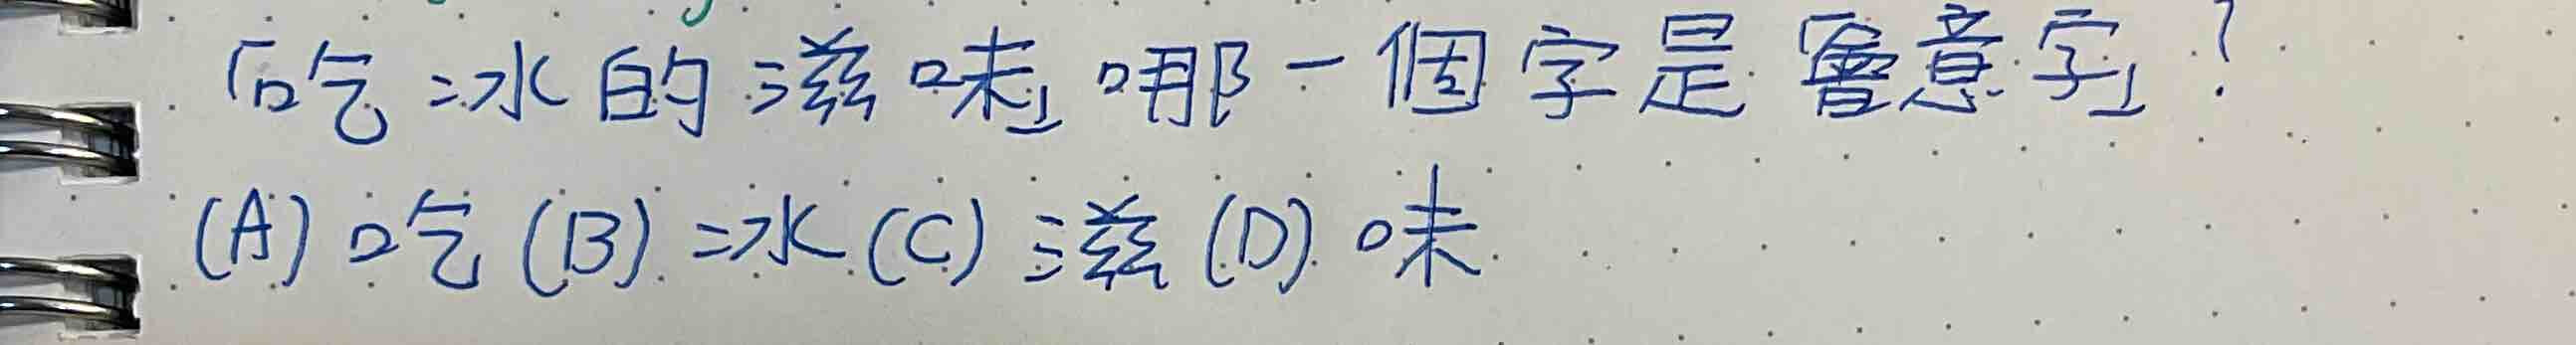 「吃冰的滋味」哪一個字是「會意字」?
(A)吃(B)冰(C)滋(D)味